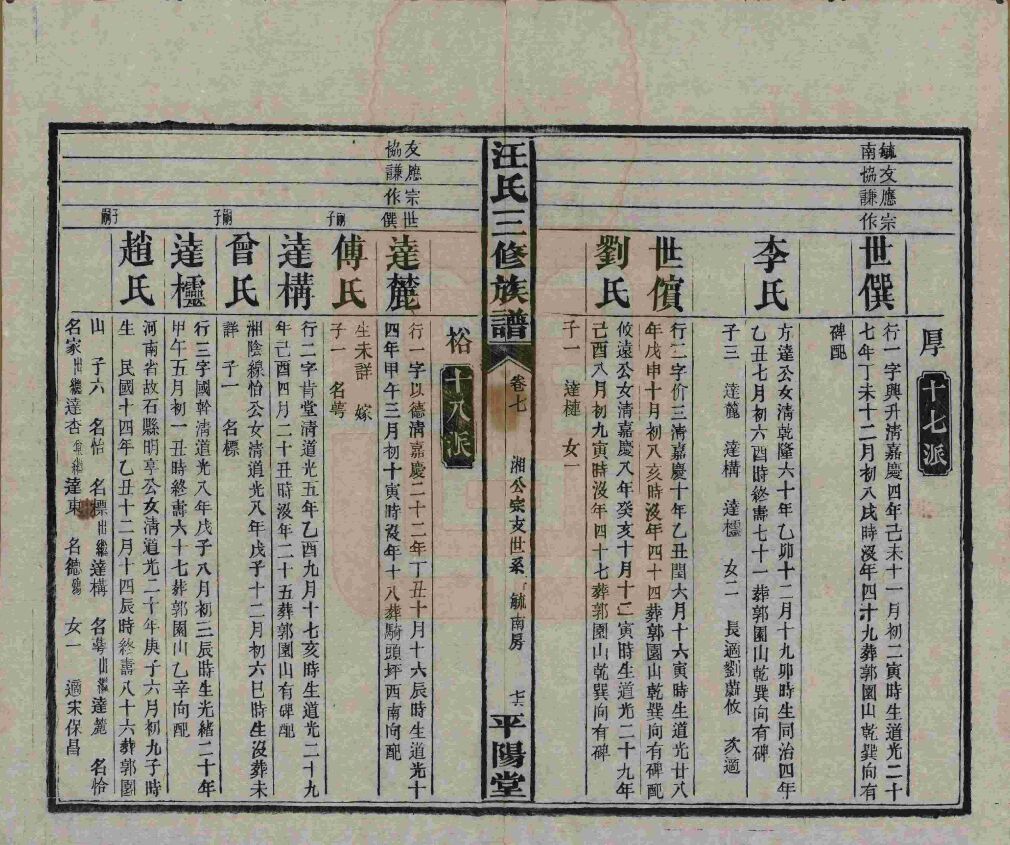 厚 十七派
毓南
友協
應謙
宗作
世僎
行一字興升清嘉慶四年己未十一月初二寅時生道光二十
七年丁未十二月初八戌時沒年四十九葬郭園山乾巽向有
碑配
李氏
方達公女清乾隆六十年乙卯十二月十九卯時生同治四年
乙丑七月初六酉時終壽七十一葬郭園山乾巽向有碑
子三 達麓 達構 達櫺 女二 長適劉蔚攸 次適
世儥
行二字价三清嘉慶十年乙丑閏六月十六寅時生道光廿八
年戊申十月初八亥時沒年四十四葬郭園山乾巽向有碑配
劉氏
攸遠公女清嘉慶八年癸亥十月十二寅時生道光二十九年
己酉八月初九寅時沒年四十七葬郭園山乾巽向有碑
子一 達槤 女一
汪氏三修族譜
卷七 湘公宗支世系 毓南房 平陽堂
裕 十八派
友協
應謙
宗作
世僎
達麓
行一字以德清嘉慶二十二年丁丑十月十六辰時生道光十
四年甲午三月初十寅時沒年十八葬騎頭坪西南向配
傅氏
生未詳 嫁
子一 名萼
嗣子
達構
行二字肯堂清道光五年乙酉九月十七亥時生道光二十九
年己酉四月二十丑時沒年二十五葬郭園山有碑配
曾氏
湘陰線怡公女清道光八年戊子十二月初六巳時生沒葬未
詳 子一 名標
嗣子
達櫺
行三字國幹清道光八年戊子八月初三辰時生光緒二十年
甲午五月初一丑時終壽六十七葬郭園山乙辛向配
趙氏
河南省故石縣明亭公女清道光二十年庚子六月初九子時
生 民國十四年乙丑十二月十四辰時終壽八十六葬郭園
嗣子
山 子六 名怡 名標出繼達構 名萼出繼達麓 名恰
名家出繼達杏 達東 名德殤 女一 適宋保昌